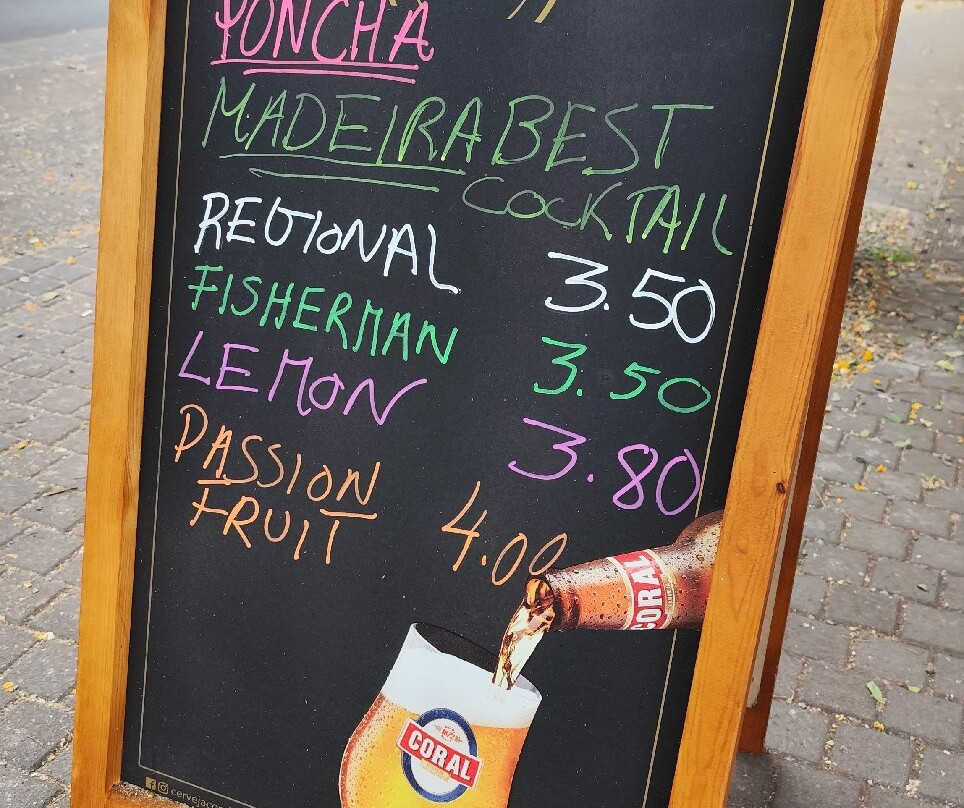 PONCHA
MADEIRA BEST
COCKTAIL
REGIONAL 3.50
FISHERMAN 3.50
LEMON 3.80
PASSION
FRUIT 4.00
CORAL
CORAL